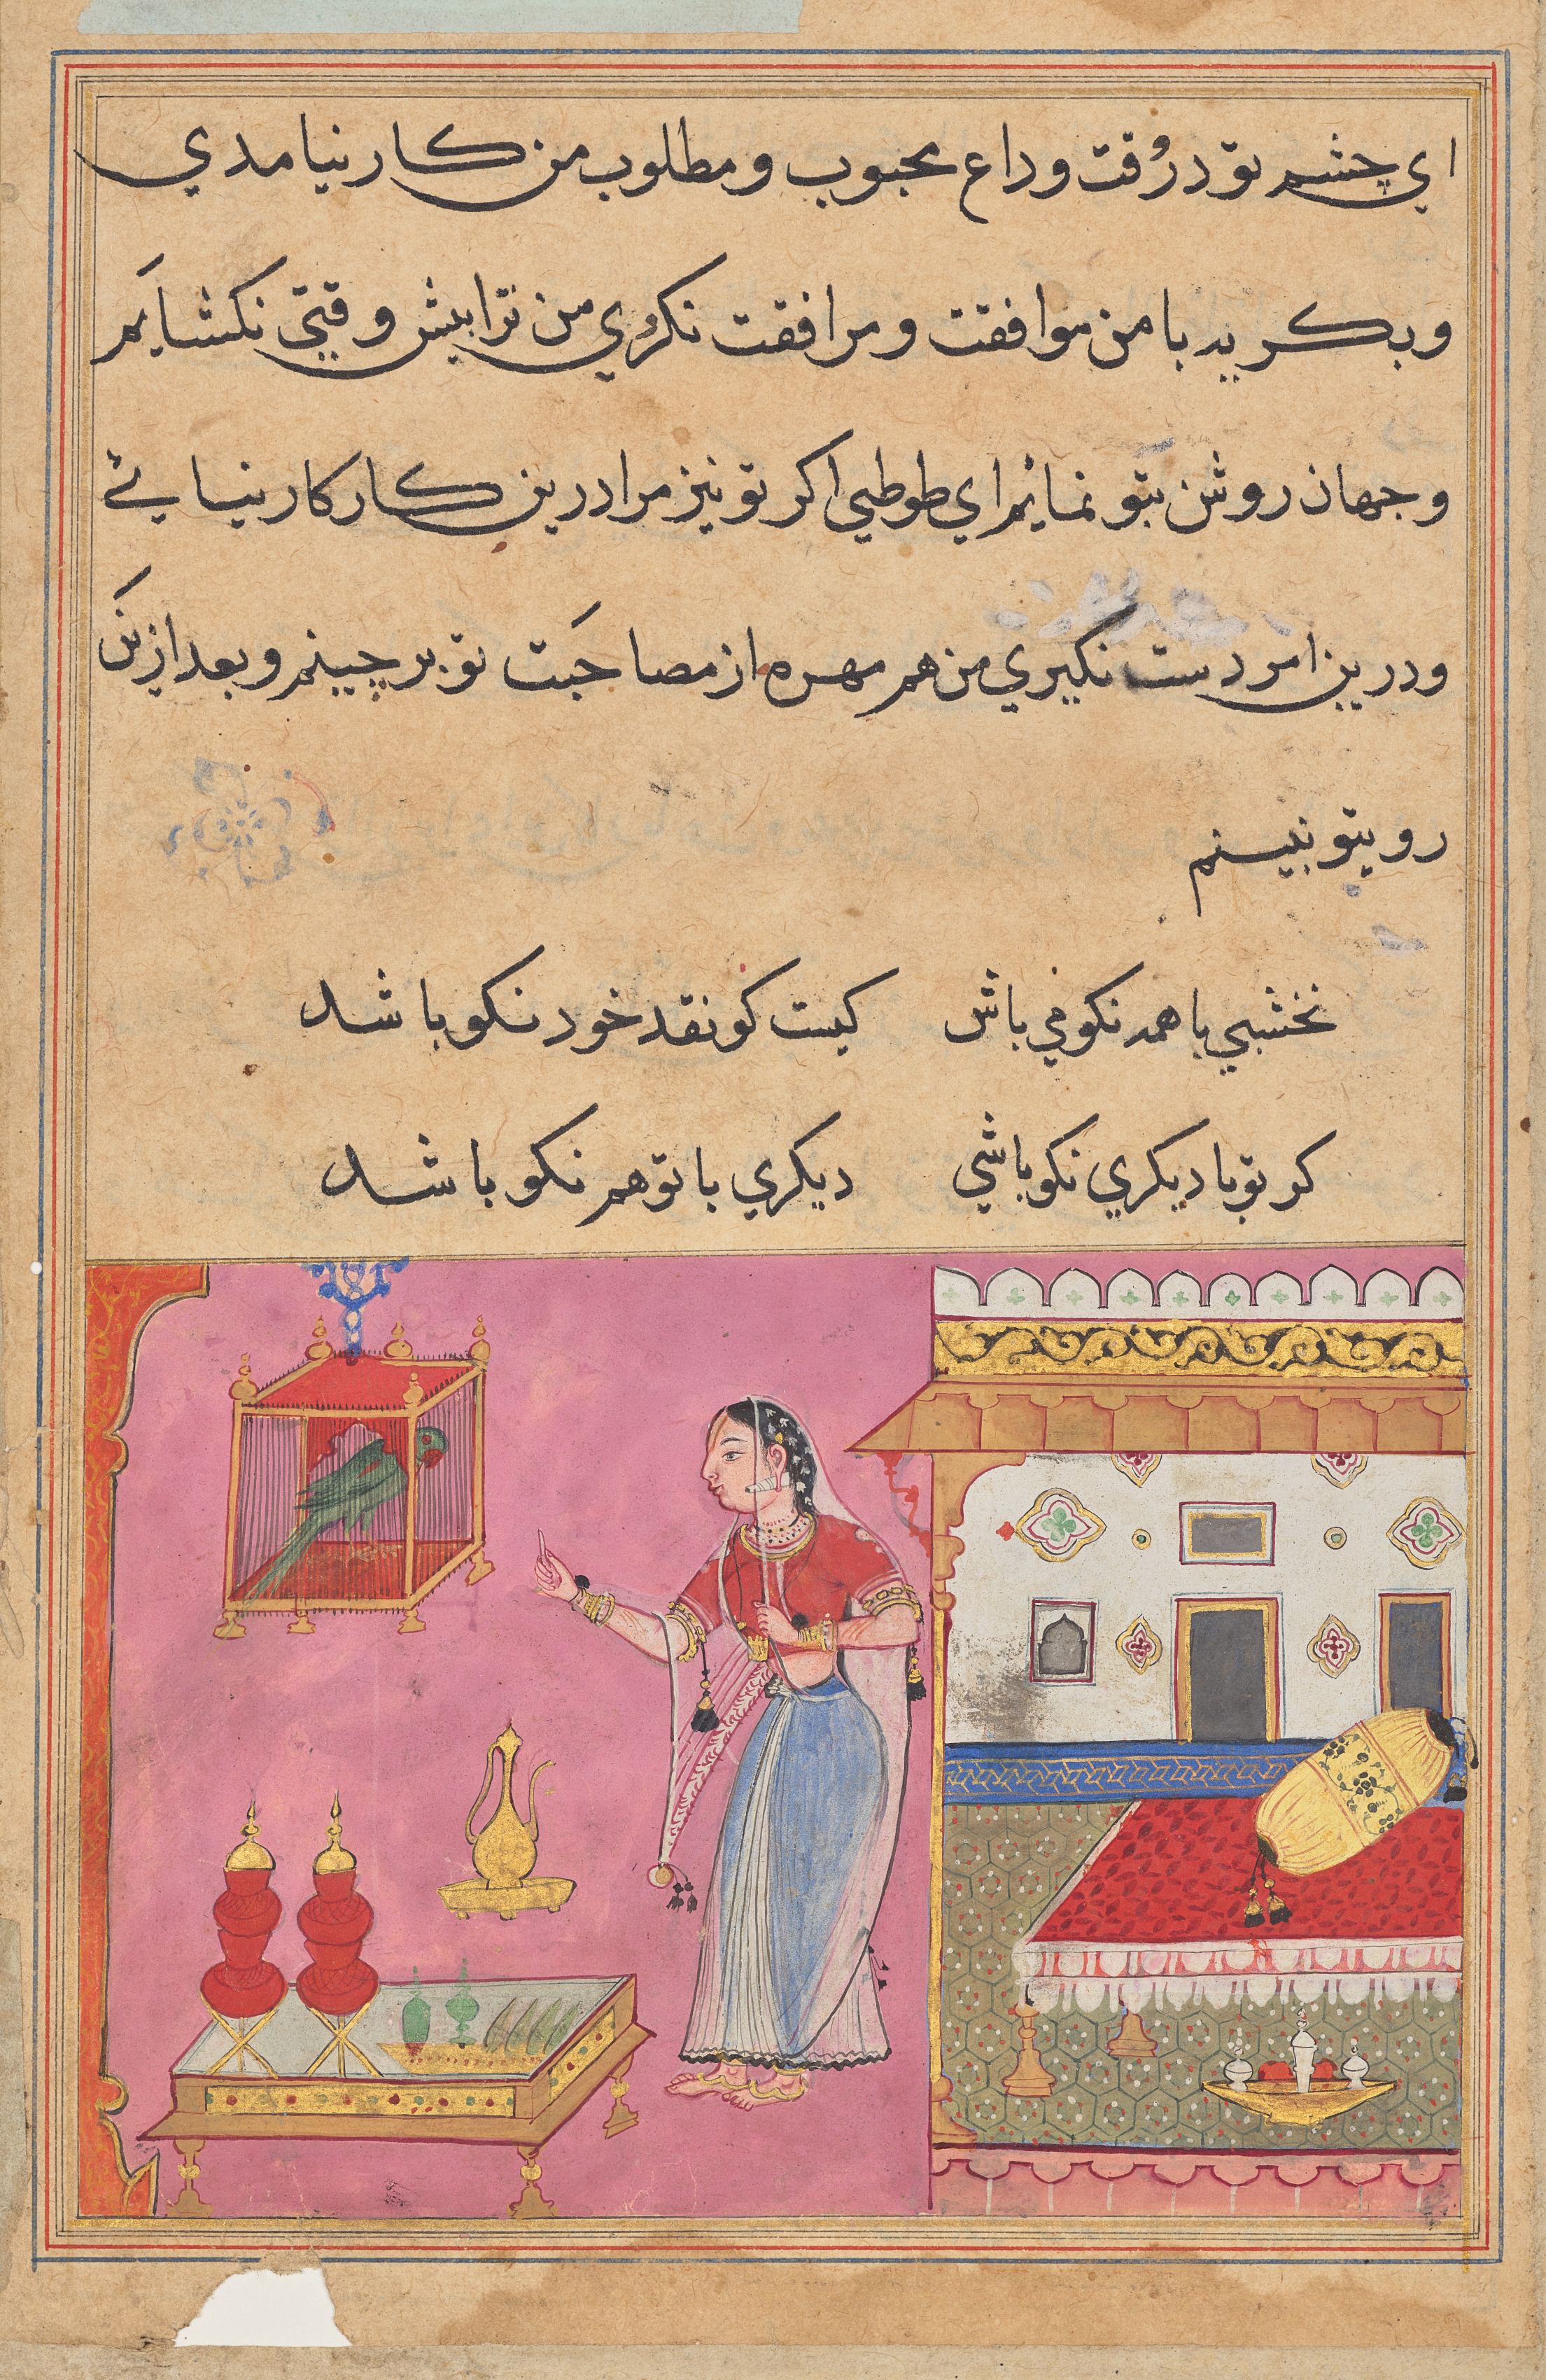 اي چشم تو در وقت وداع محبوب و مطلوب من كار نيامدي
و بكريه با من موافقت و مرافقت نكردي من ترا بيش وقتي نكشايم
و جهان روشن بتو نمايم اي طوطي اكر تو نيز مرا درين كار كار نيائے
و درين امر دست نكيري من هم مهره از مصاحبت تو بر چينم و بعد ازين
رويتو نبينم
نخشبي با همه نكو مي باش كيست كو نقد خود نكو باشد
كر تو با ديكري نكو باشي ديكري با تو هم نكو باشد